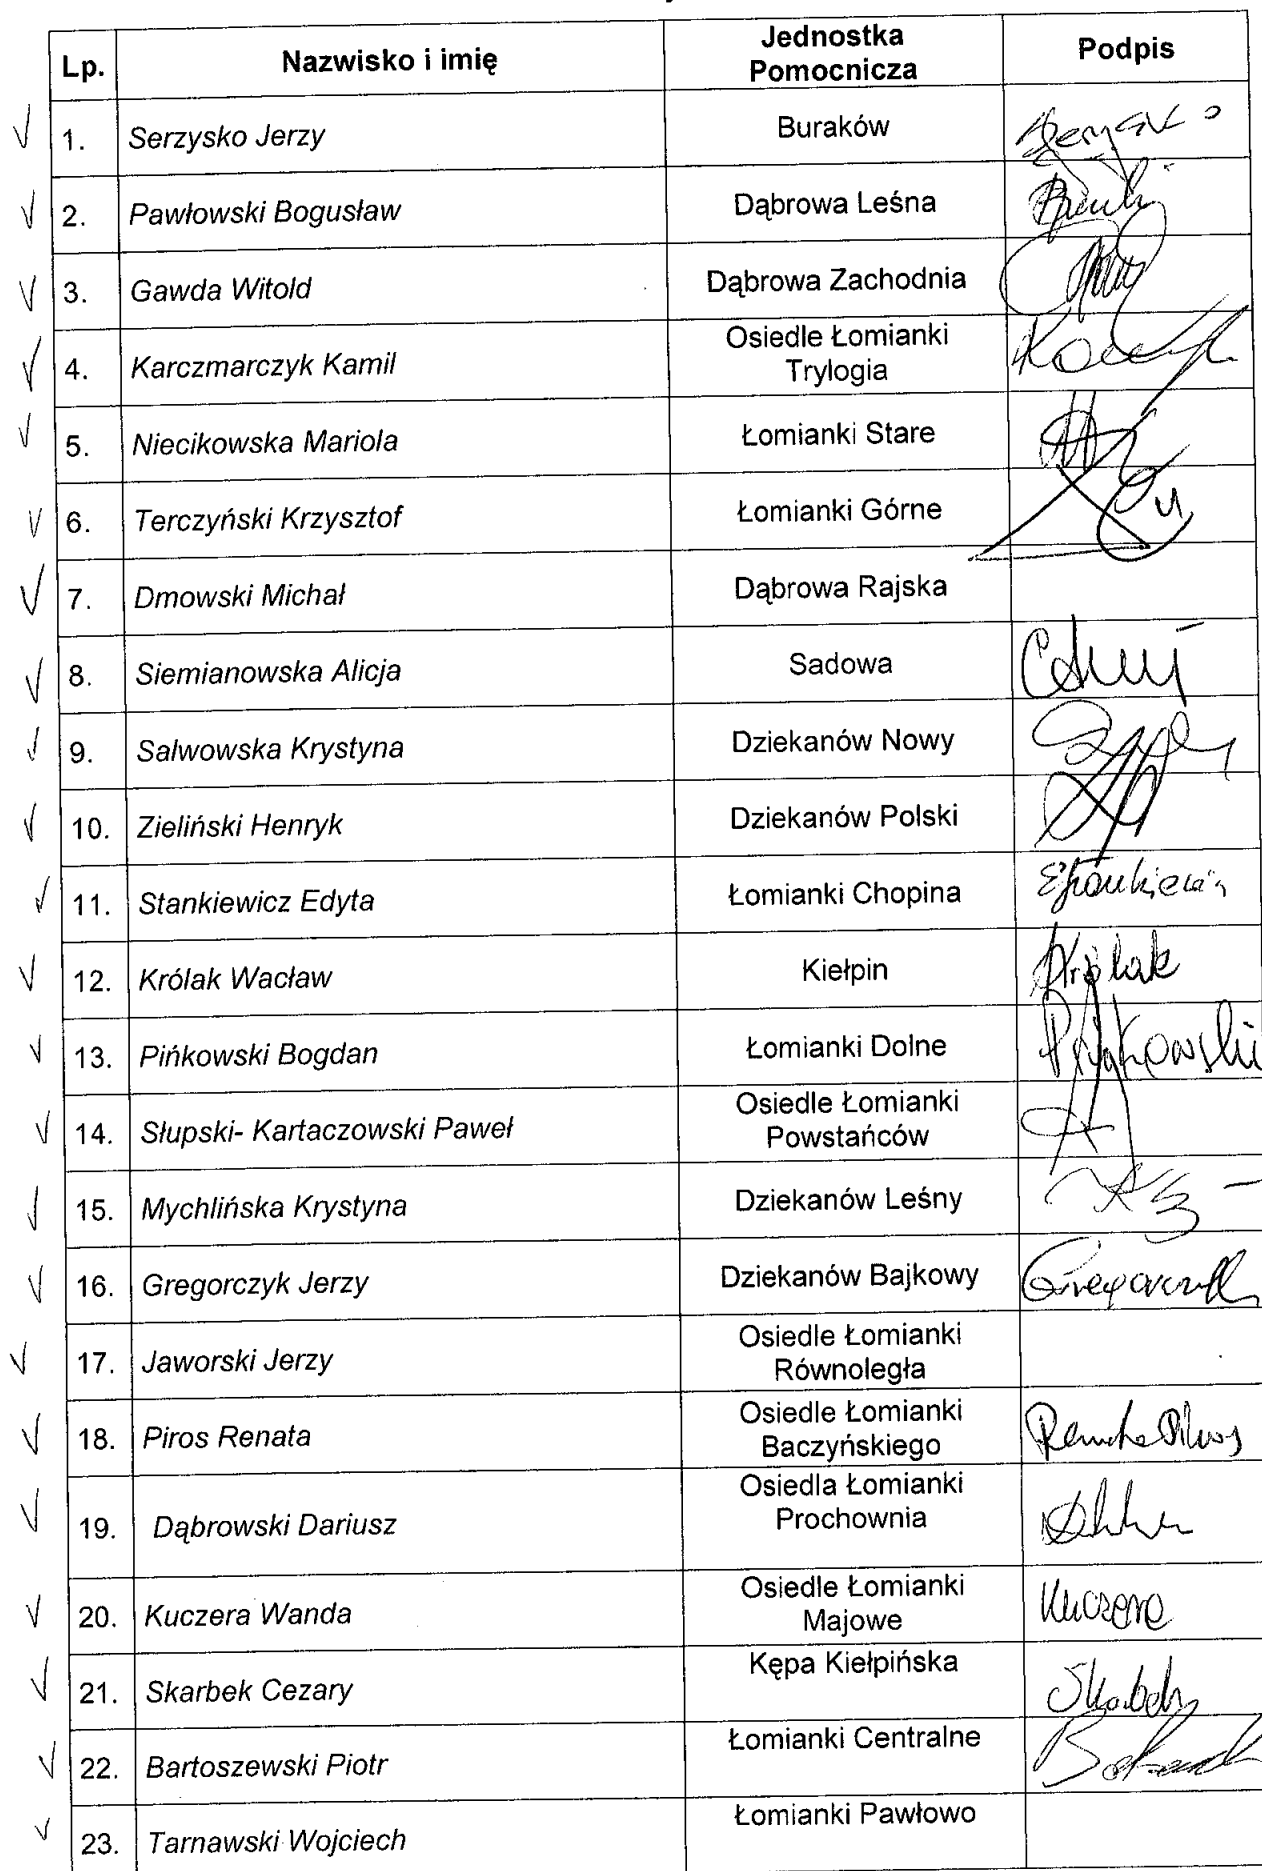 Lp. Nazwisko i imię Jednostka Pomocnicza Podpis
1. Serzysko Jerzy Buraków
2. Pawłowski Bogusław Dąbrowa Leśna
3. Gawda Witold Dąbrowa Zachodnia
4. Karczmarczyk Kamil Osiedle Łomianki Trylogia
5. Niecikowska Mariola Łomianki Stare
6. Terczyński Krzysztof Łomianki Górne
7. Dmowski Michał Dąbrowa Rajska
8. Siemianowska Alicja Sadowa
9. Salwowska Krystyna Dziekanów Nowy
10. Zieliński Henryk Dziekanów Polski
11. Stankiewicz Edyta Łomianki Chopina
12. Królak Wacław Kiełpin Królak
13. Pińkowski Bogdan Łomianki Dolne Pińkowski
14. Słupski- Kartaczowski Paweł Osiedle Łomianki Powstańców
15. Mychlińska Krystyna Dziekanów Leśny
16. Gregorczyk Jerzy Dziekanów Bajkowy Gregorczyk
17. Jaworski Jerzy Osiedle Łomianki Równoległa
18. Piros Renata Osiedle Łomianki Baczyńskiego Renata Piros
19. Dąbrowski Dariusz Osiedla Łomianki Prochownia
20. Kuczera Wanda Osiedle Łomianki Majowe Kuczera
21. Skarbek Cezary Kępa Kiełpińska
22. Bartoszewski Piotr Łomianki Centralne
23. Tarnawski Wojciech Łomianki Pawłowo